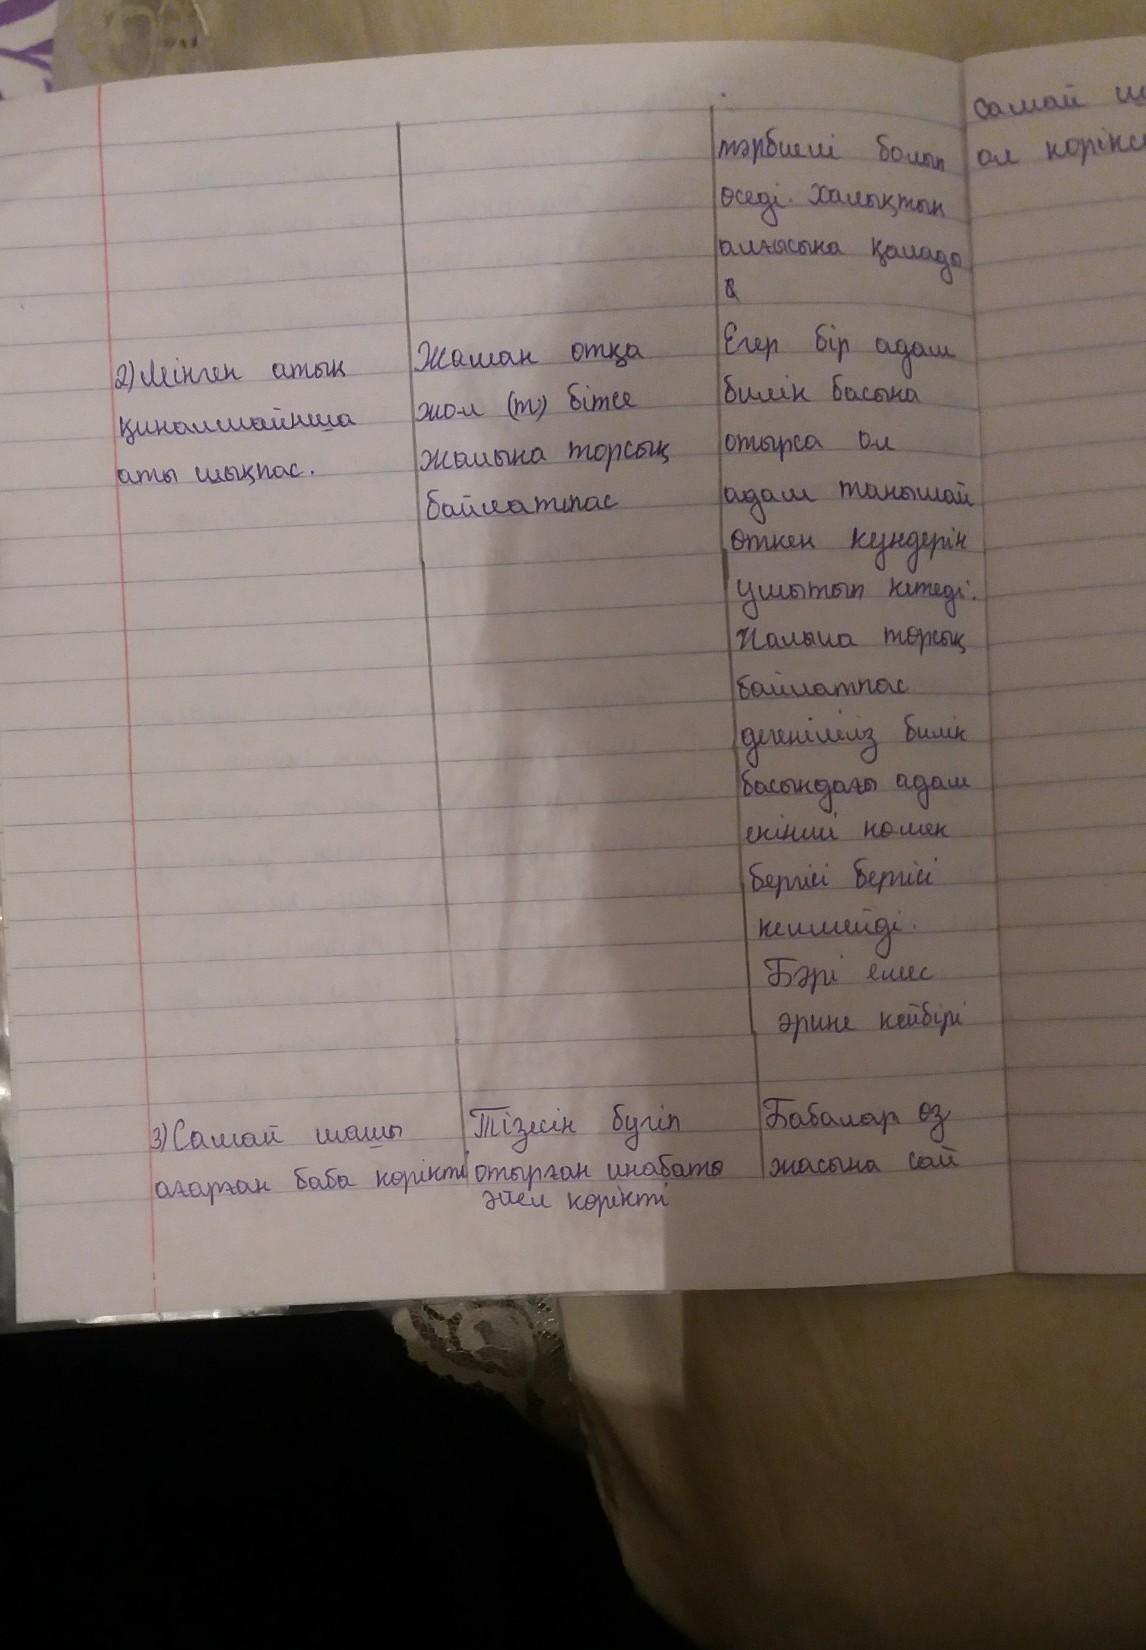 тәрбиелі болып
өседі. Халықтың
алғысына қалады
2) Мінген атың
қиналмайынша
аты шықпас.
Жаман отқа
жол (т) бітсе
жалына торсық
байлатпас
Егер бір адам
билік басына
отырса ол
адам танымай
өткен күндерін
ұмытып кетеді.
Жалына торсық
байлатпас
дегеніміз билік
басындағы адам
екінші көмек
бергісі бергісі
келмейді.
Бәрі емес
әрине кейбірі
3) Самай шашы
ағарған баба көрікті
Тізесін бүгіп
отырған инабатты
әйел көрікті
Бабалар өз
жасына сай
самай
ол